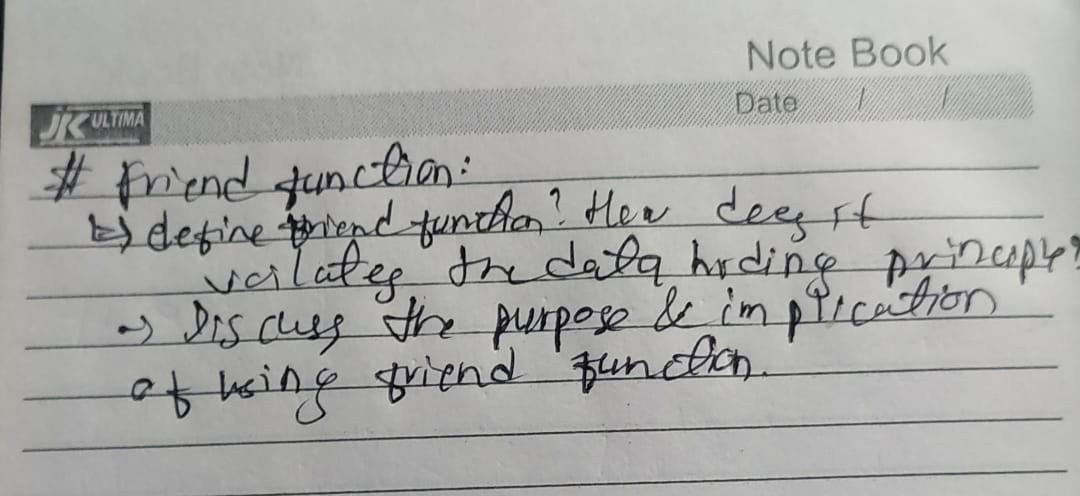 Note Book
Date / /
JK ULTIMA
# Friend function:
↳ define friend function? How does it
voilates the data hiding principle?
→ Discuss the purpose & implication
of using friend function.